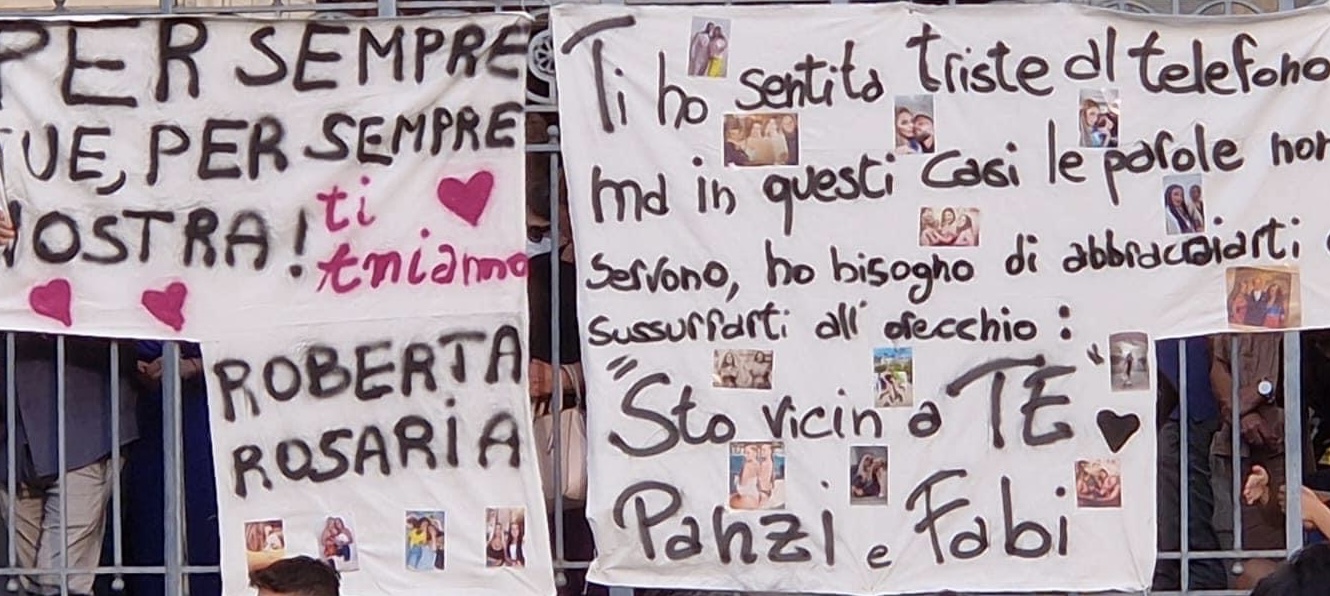 PER SEMPRE
TUE, PER SEMPRE
NOSTRA!
ti
tniamo
ROBERTA
ROSARIA
Ti ho sentita triste al telefono
ma in questi casi le parole non
servono, ho bisogno di abbracciarti e
sussurrarti all' orecchio :
"Sto vicin a TE"
Panzi e Fabi